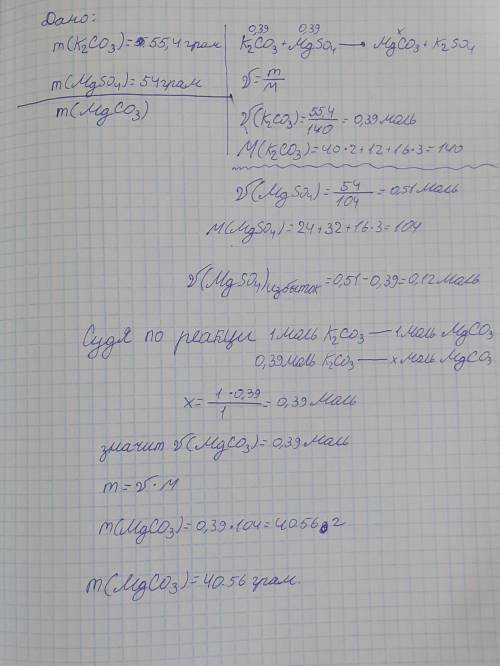 Дано:
m(K2CO3)=55,4 грам
m(MgSO4)=54 грам
m(MgCO3)
0,39 0,39 x
K2CO3+MgSO4→MgCO3+K2SO4
ν=m/M
ν(K2CO3)=55,4/140=0,39 моль
M(K2CO3)=40·2+12+16·3=140
ν(MgSO4)=54/104=0,51 моль
M(MgSO4)=24+32+16·3=104
ν(MgSO4)избыток=0,51-0,39=0,12 моль
Судя по реакци 1 моль K2CO3—1 моль MgCO3
0,39 моль K2CO3—x моль MgCO3
x=1·0,39/1=0,39 моль
значит ν(MgCO3)=0,39 моль
m=ν·M
m(MgCO3)=0,39·104=40.56 г
m(MgCO3)=40.56 грам.